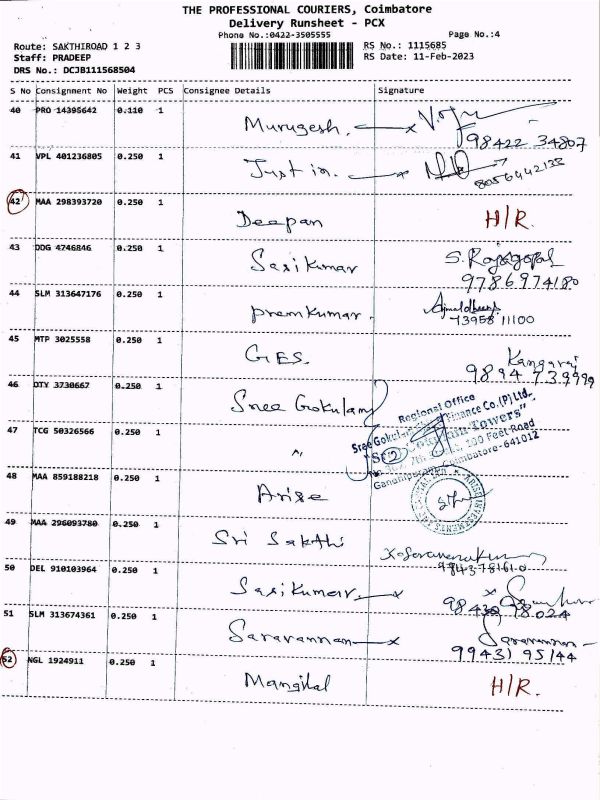 THE PROFESSIONAL COURIERS, Coimbatore
Delivery Runsheet - PCX
Phone No.:0422-3505555 Page No.:4
Route: SAKTHIROAD 1 2 3 RS No.: 1115685
Staff: PRADEEP RS Date: 11-Feb-2023
DRS No.: DCJB111568504
S No Consignment No Weight PCS Consignee Details Signature
40 PRO 14395642 0.110 1 Murugesh.
98422 34807
41 VPL 401236805 0.250 1 Justin.
8056442133
42 MAA 298393720 0.250 1 Deepan H/R.
43 DDG 4746846 0.250 1 Sasikumar S. Rajagopal
9786974180
44 SLM 313647176 0.250 1 premkumar.
73958 11100
45 MTP 3025558 0.250 1 GES. Kangaraj
9894739999
46 OTY 3730667 0.250 1 Sree Gokulam
Regional Office
47 TCG 50326566 0.250 1 〃
Sree Gokulam Finance Co.(P) Ltd.,
Towers"
100 Feet Road
Coimbatore-641012
48 MAA 859188218 0.250 1 Arise
49 MAA 296093780 0.250 1 Sri Sakthi K. Saravanakumar
9843781610
50 DEL 910103964 0.250 1 Sasikumar
98430 98024
51 SLM 313674361 0.250 1 Saravannan Saravannan
99431 95144
52 NGL 1924911 0.250 1 Mangilal H/R.